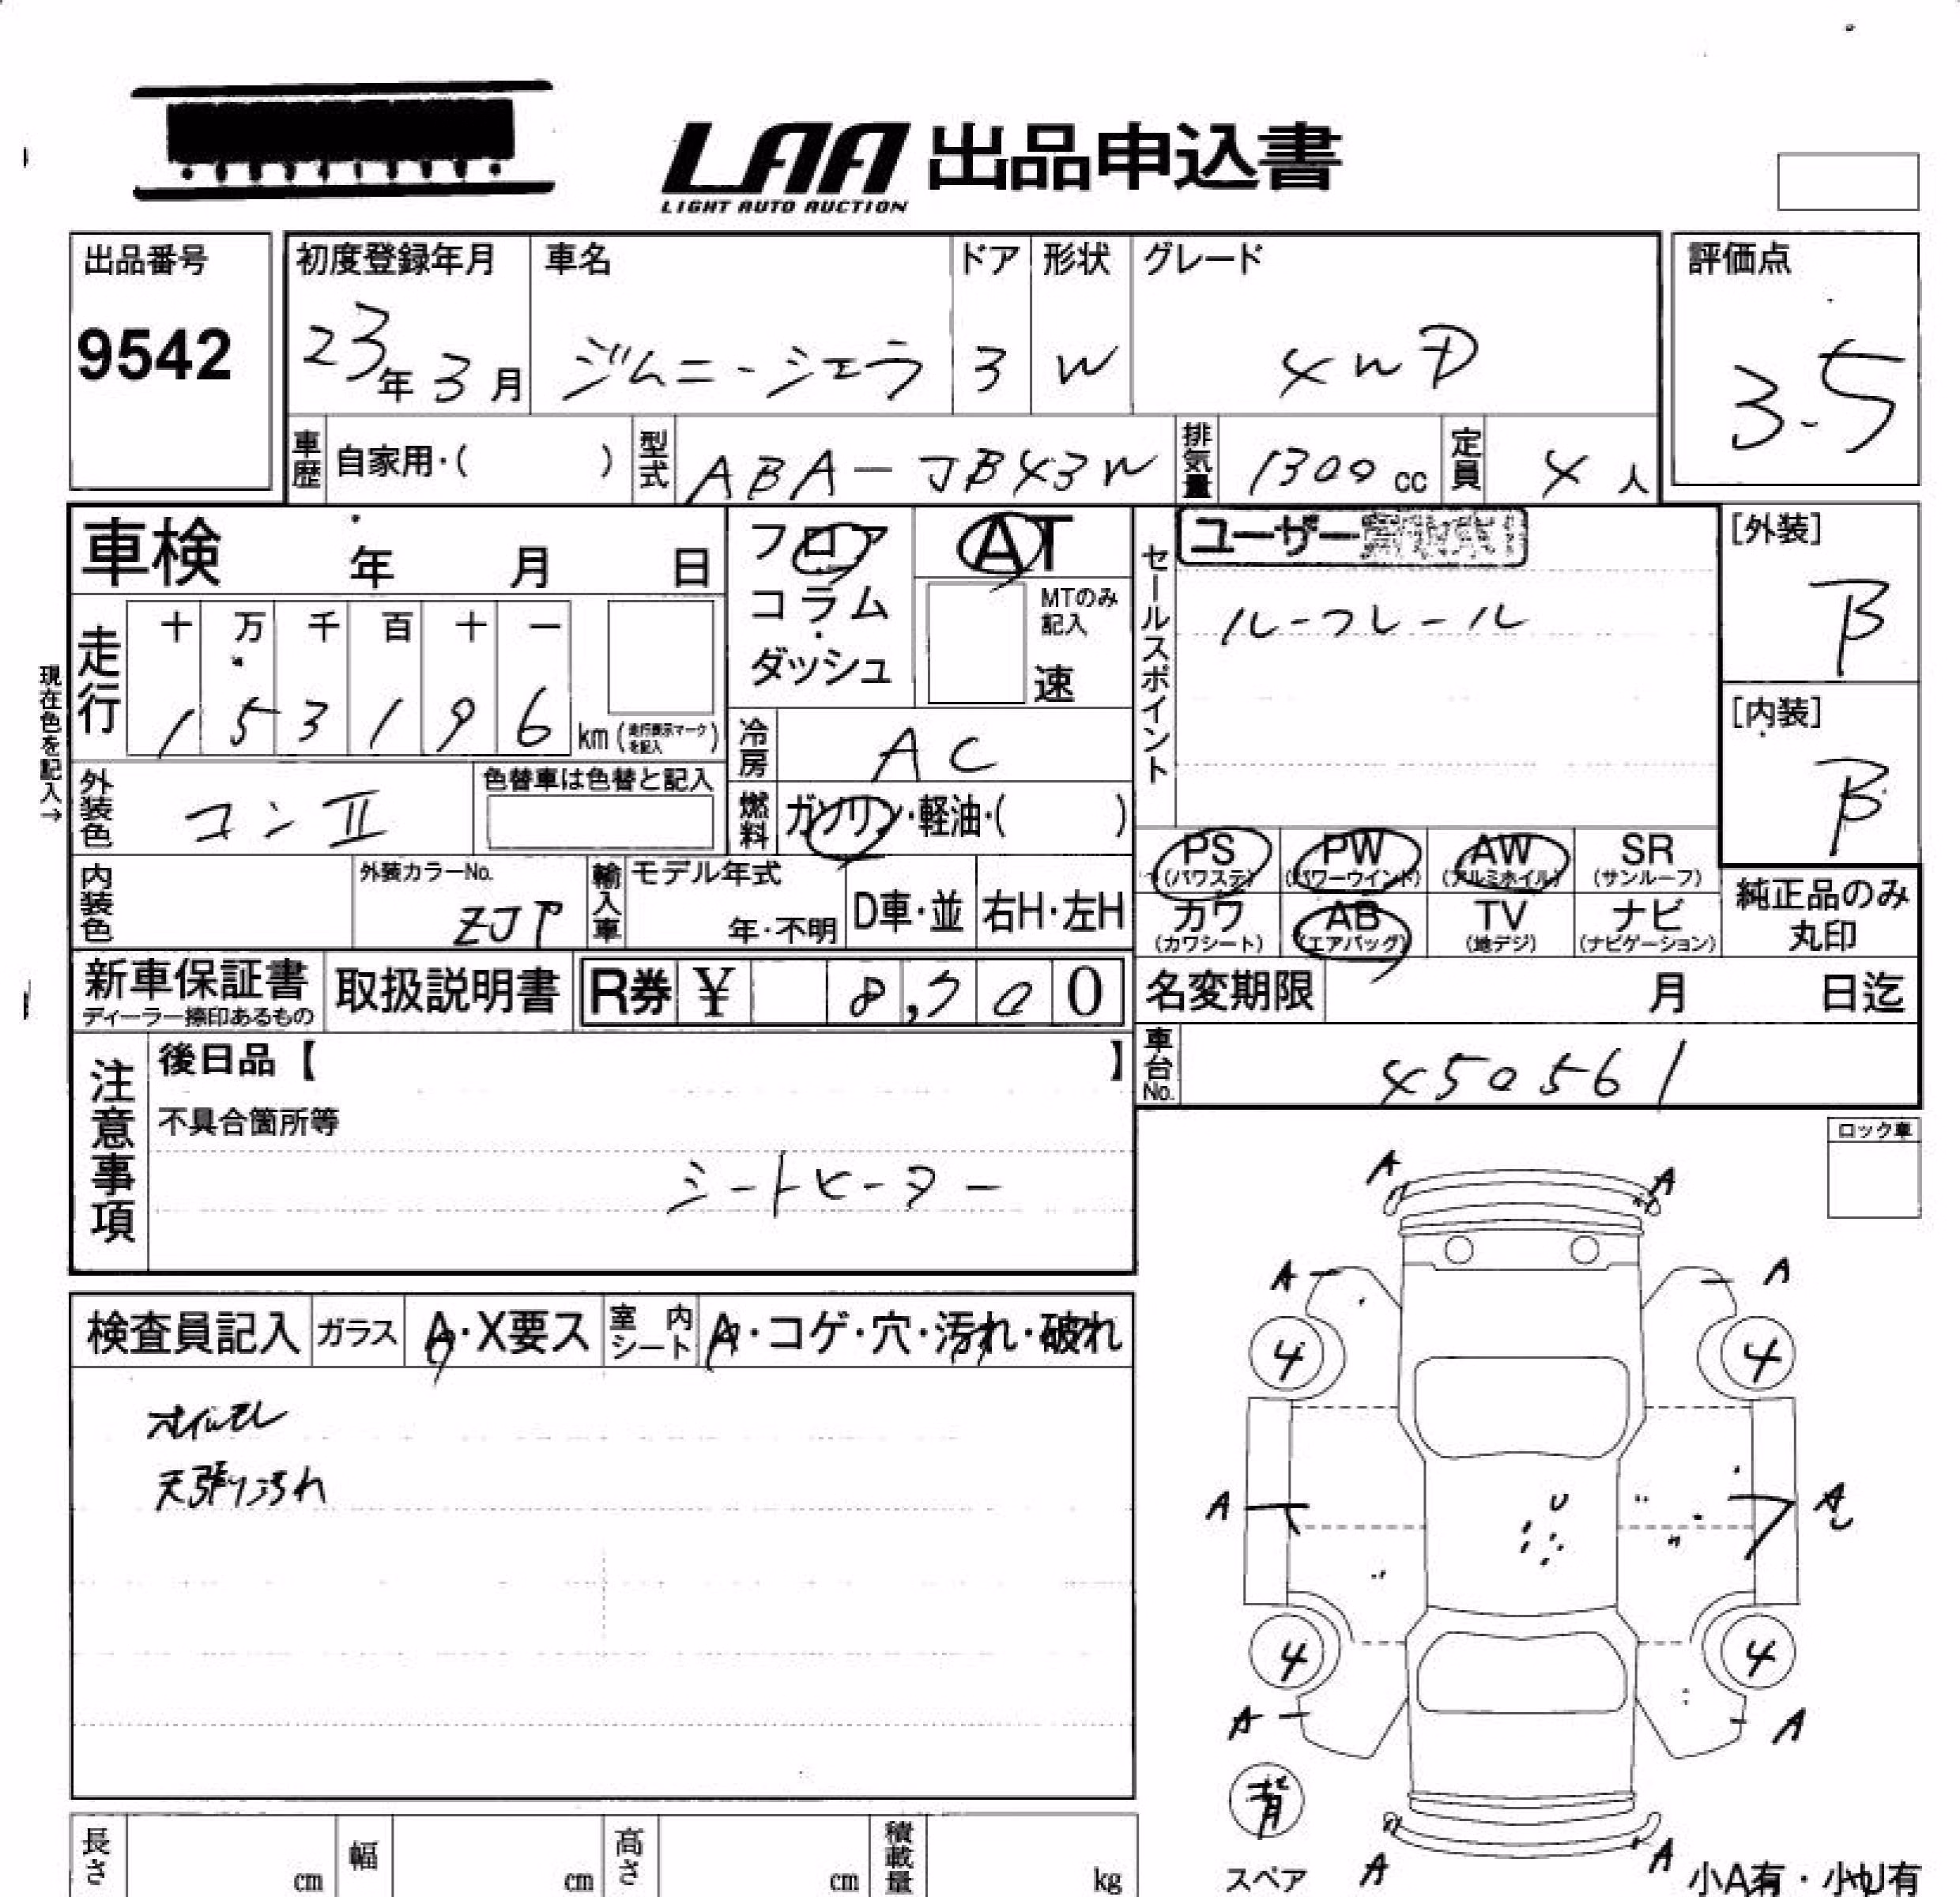 LAA 出品申込書
LIGHT AUTO AUCTION
出品番号
9542
初度登録年月 車名 ドア 形状 グレード 評価点
23年3月 ジムニーシエラ 3 W 4WD 3.5
車歴 自家用・( ) 型式 ABA-JB43W 排気量 1300cc 定員 4人
車検 年 月 日
フロア
コラム
ダッシュ
AT
MTのみ
記入
速
セールスポイント
ユーザー
ルーフレール
[外装]
B
[内装]
B
現在色を記入→
走行 十 万 千 百 十 一
1 5 3 1 9 6 km(走行表示マークを記入)
冷房 AC
外装色 コンⅡ 色替車は色替と記入
燃料 ガソリン・軽油・( )
PS PW AW SR
(パワステ) (パワーウインド) (アルミホイル) (サンルーフ)
カワ AB TV ナビ
(カワシート) (エアバッグ) (地デジ) (ナビゲーション)
純正品のみ
丸印
内装色 外装カラーNo. ZJP
輸入車 モデル年式 年・不明 D車・並 右H・左H
新車保証書
ディーラー捺印あるもの
取扱説明書 R券 ¥ 8,700
名変期限 月 日迄
車台No. 450561
注意事項
後日品【 】
不具合箇所等
シートヒーター
ロック車
検査員記入 ガラス A・X要ス 室内シート A・コゲ・穴・汚れ・破れ
オイルモレ
天張り汚れ
A A
A A
4 4
A A
4 4
A A
背
スペア
A A
小A有・小U有
長さ cm 幅 cm 高さ cm 積載量 kg